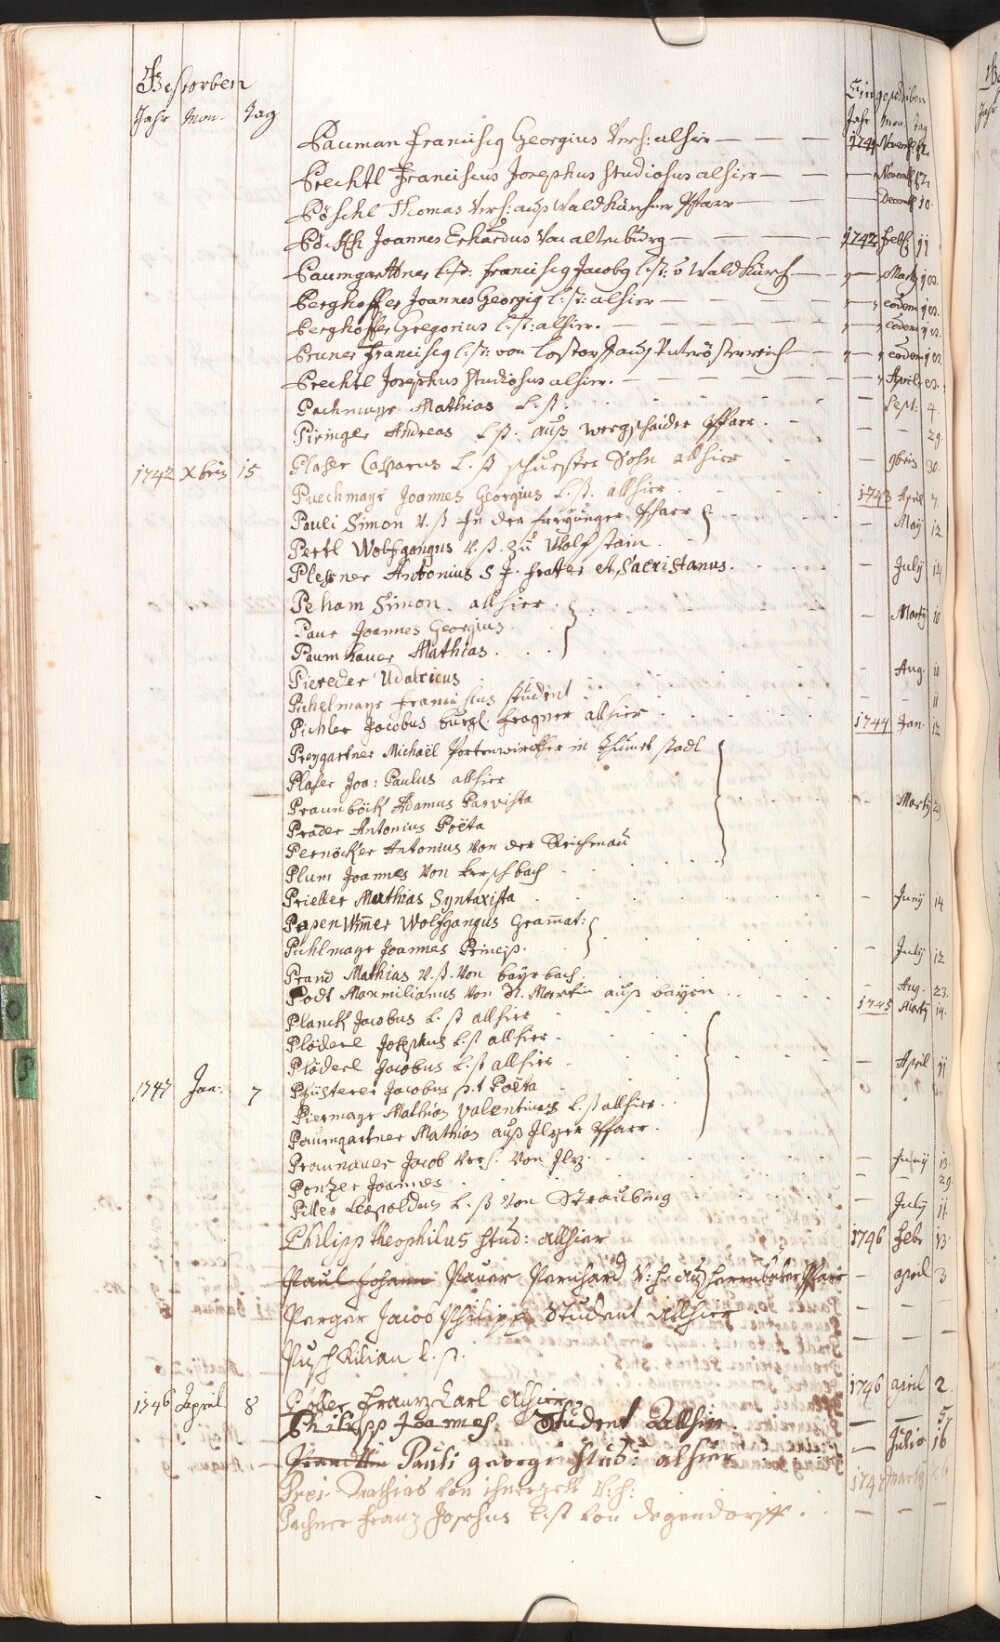 Gestorben
Jahr Mon. Tag
Eingeschriben
Jahr Mon. Tag
Bauman Franciscq Georgius Verh: alhier — 1741 Novemb: 12.
Brechtl Franciscus Josephus Studiosus alhier — Novemb 17.
Böschl Thomas Verh: auß Waldkürchner Pfarr — Decemb 10.
Joannes Erhardus Von altenburg — 1742 Feb: 11
Baumgarttner l. st: Franciscq Jacobq l. st: v Waldkürch — Marty
Berghoffer Joannes Georgiq l. st: alhier — eodem
Berghoffer Gregorius l. st: alhier. — eodem
Bruner Franciscq l: st: von auß Unterösterreich — eodem
Brechtl Josephus Studiosus alhier. — April
Pachmayr Mathias l. st: — Sept: 4.
Piringer Andreas l st: auß wegschaider Pfarr. — 29.
1742 Xbris 15 Plaser l. st Sohn allhier — 9bris 30.
Puechmayr Joannes Georgius l. st. allhier. 1743 April 7.
Pauli Simon v. st In der Pfarr — Maÿ 12.
Pertl Wolfgangus v. st. zu Wolfstain.
Plesner Antonius S J. frater et Sacristanus. — July 14
Peham Simon. allhier. — Marty 10
Paur Joannes Georgius.
Paumhauer Mathias.
Piereder Udalricus — Aug. 10
Pichelmayr Franciscus Student — 11
Pichler Jacobus burgl. fragner allhier. 1744 Jan. 12
Preygartner Michaël in stadl
Plaser Joa: Paulus allhier
Praunböck Adamus Parvista — Marty 29
Prader Antonius Poëta
Pernöcker Antonius Von der Reichenau
Plum Joannes Von
Prieller Mathias Syntaxista — Juny 14
Papen Wimer Wolfgangus Gram̄at:
Pichlmayr Joannes Princip. — July 12
Prand Mathias v. st. Von bayrbach. — Aug. 23.
Podt Maxmilianus Von St. Martin auß bayrn. 1745 Marty 14.
Planck Jacobus l. st allhier
Pläderl Josephus l. st allhier.
Pläderl Jacobus l. st allhier — April 11
1747 Jan: 7 Pfisterer Jacobus Poëta
Piermayr Mathias Valentinus l. st allhier.
Paumgartner Mathias auß Ilzer Pfarr.
Praunauer Jacob Verh. Von Ilz. — Juny 13.
Ponzer Joannes — 29.
Piller Leopoldus l. st Von Straubing — July 11.
Philipp Theophilus stud: allhier 1746 Feb: 13
Paul Johann Paur Pernhard V: h: auß Pfarr — april 3
Perger Jacob Philipp Student allhier — — —
Pusch Kilian l. st. — — —
1746 April 8 Franz Carl alhier 1746 april 2
Philipp Joannes. Student Allhier. — — 5.
Pauli georgi stud: alhier — Julio 16
Mathias Von l: h: 1747 marty
Pachner Franz Josephus l. st Von degendorff. — — —